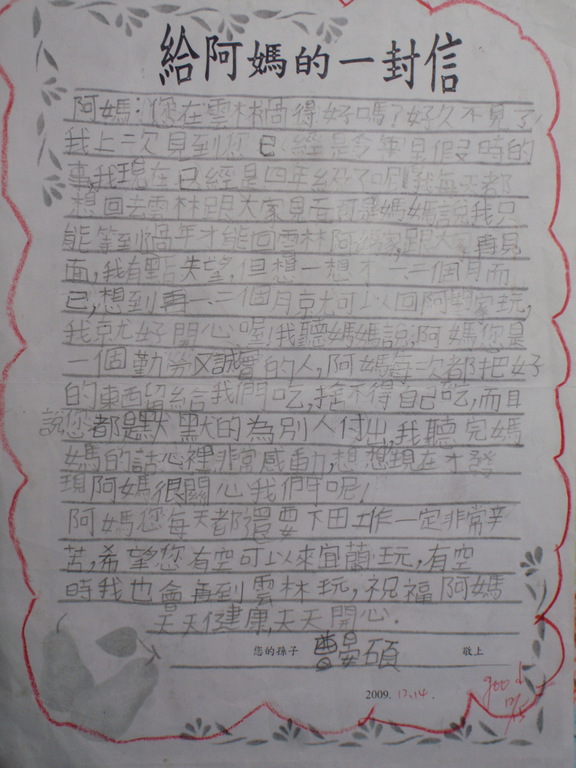 給阿媽的一封信
阿媽:您在雲林過得好嗎?好久不見了!
我上一次見到您已經是今年暑假時的
事,我現在已經是四年級了呢!我每天都
想回去雲林跟大家見面可是媽媽說我只
能等到過年才能回雲林阿媽家,跟大家再見
面,我有點失望,但想一想才一二個月而
已,想到再一、二個月京尤可以回阿媽家玩,
我京尤好開心喔!我聽媽媽說;阿媽您是
一個勤勞又誠實的人,阿媽每次都把好
的東西留給我們吃,捨不得自己吃,而且
說您都是默默的為別人付出,我聽完媽
媽的話心裡非常感動,想想現在才發
現阿媽很關心我們呢!
阿媽您每天都還要下田工作一定非常辛
苦,希望您有空可以來宜蘭玩,有空
時我也會再到雲林玩,祝福阿媽
天天健康,天天開心.
您的孫子 曹晏碩 敬上
2009. 12.14.
good
12/15